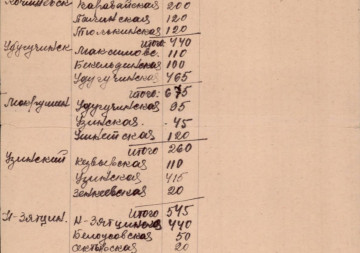 Каравайская 200
Пачинская 120
Тюлькинская 120
Итого 440
Удугучинск Максимовс. 110
Бекмодинская 100
Удугучинская 465
Итого: 675
Удугучинская 95
Узинская. 45
120
Итого 260
Узинский Кузьевская 110
Узинская 415
Зонковская 20
Итого 545
Н-Зятцин. Н-Зятцинская 440
Белоусовская 50
20